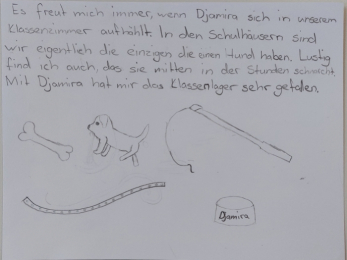 Es freut mich immer, wenn Djamira sich in unserem
Klassenzimmer aufhält. In den Schulhäusern sind
wir eigentlich die einzigen die einen Hund haben. Lustig
find ich auch, das sie mitten in der Stunden schnarcht.
Mit Djamira hat mir das Klassenlager sehr gefallen.
Djamira